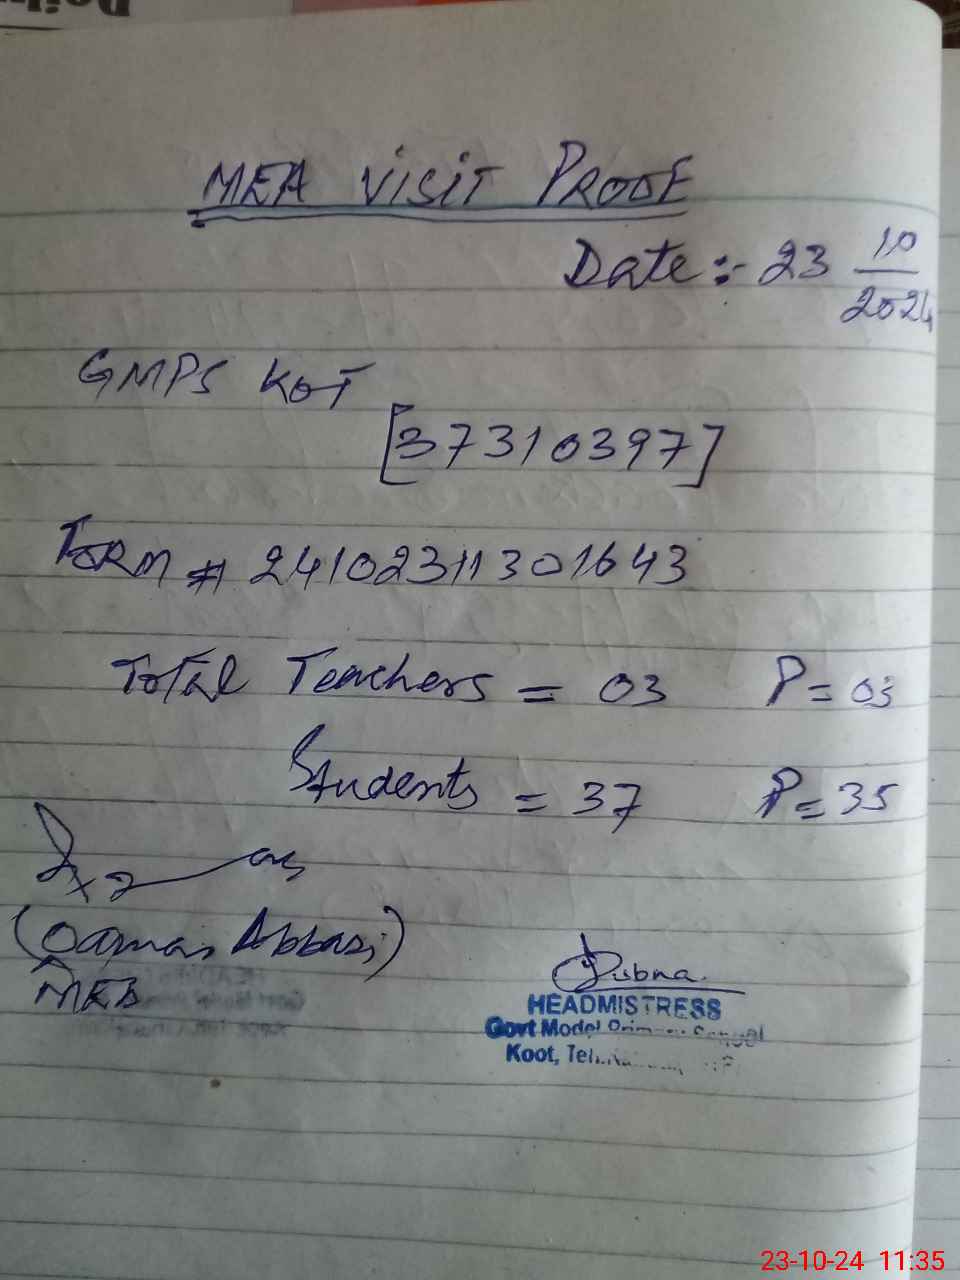 MEA VISIT PROOF
Date :- 23 10/2024
GMPS KOT
[37310397]
FORM # 24102311301643
Total Teachers = 03 P = 03
Students = 37 P = 35
Abbasi)
MEA
HEADMISTRESS
Govt Model
Koot,
23-10-24 11:35